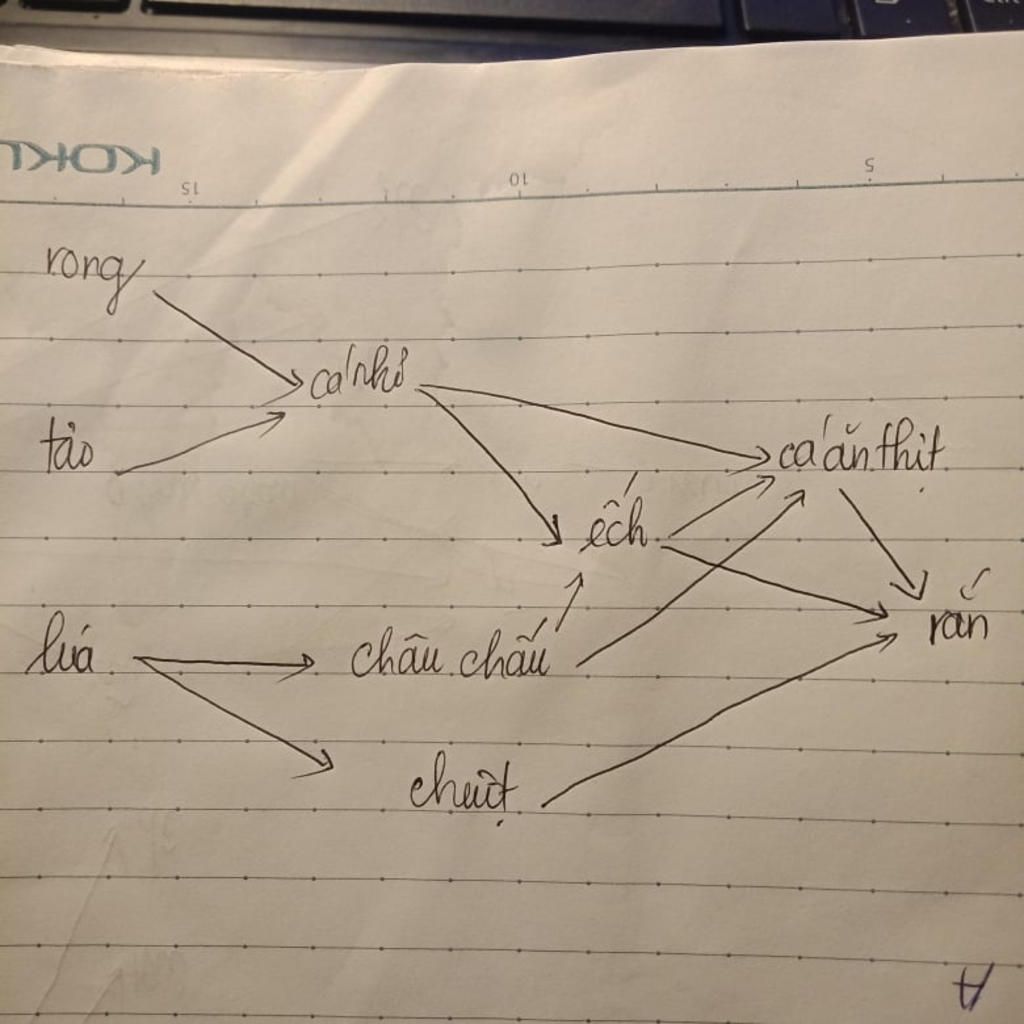 KOKU
15 10 5
rong
cá nhỏ
tảo
cá ăn thịt
ếch
rắn
lúa
châu chấu
chuột
A